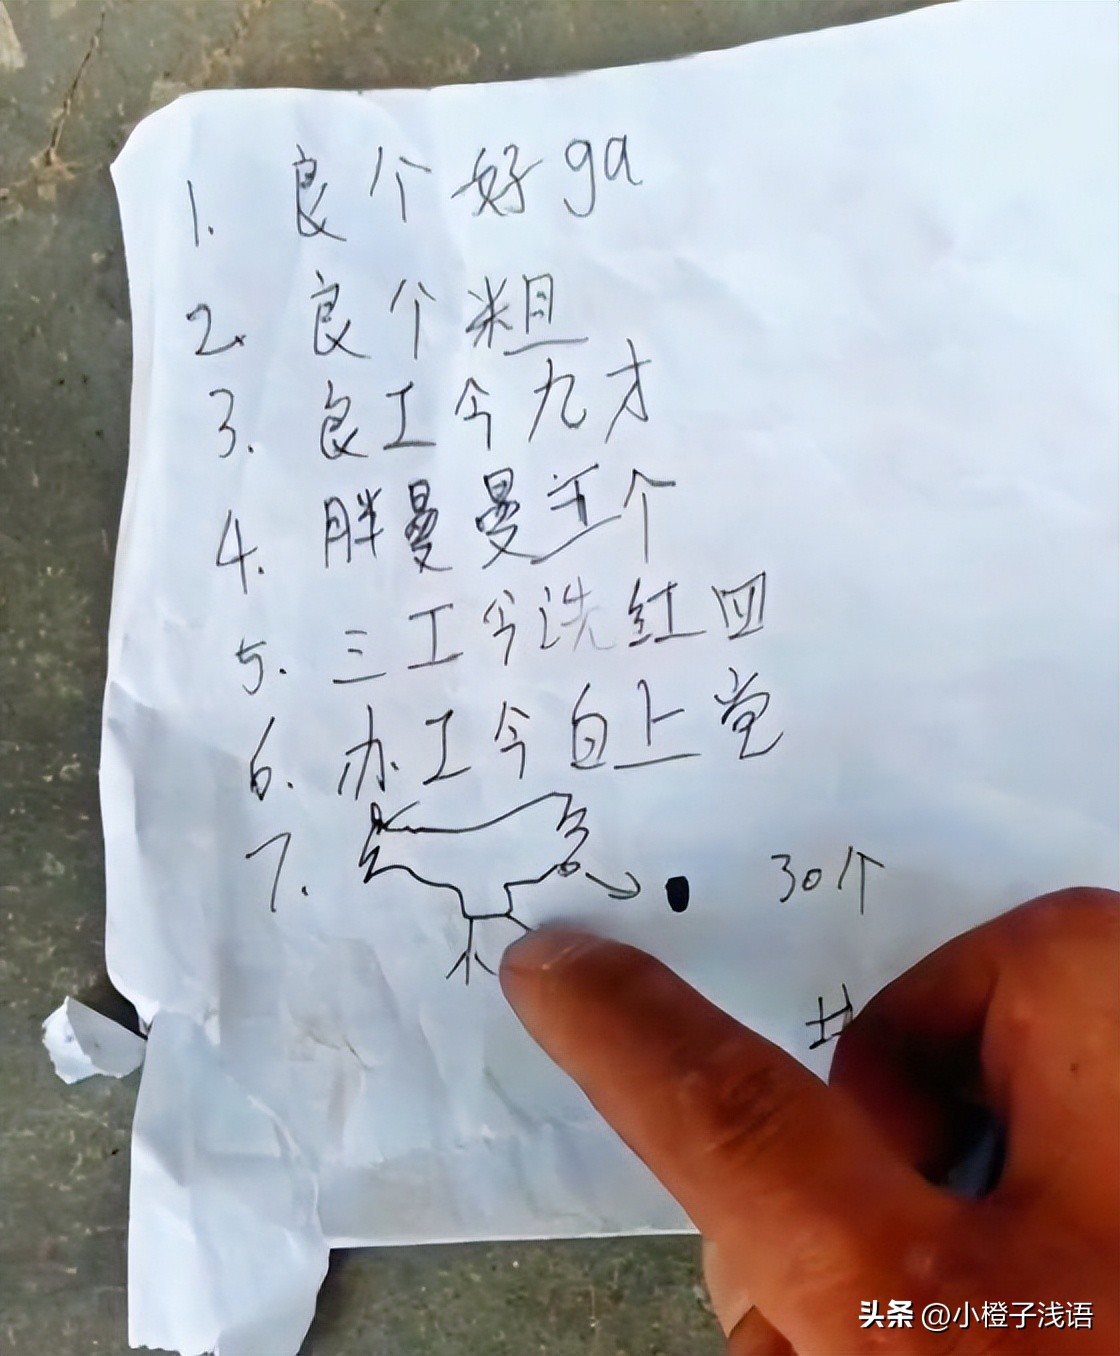 1. 良个好ga
2. 良个粗
3. 良工今九才
4. 胖曼曼王个
5. 三工今洗红四
6. 办工今白上党
7. 30个
头条 @小橙子浅语